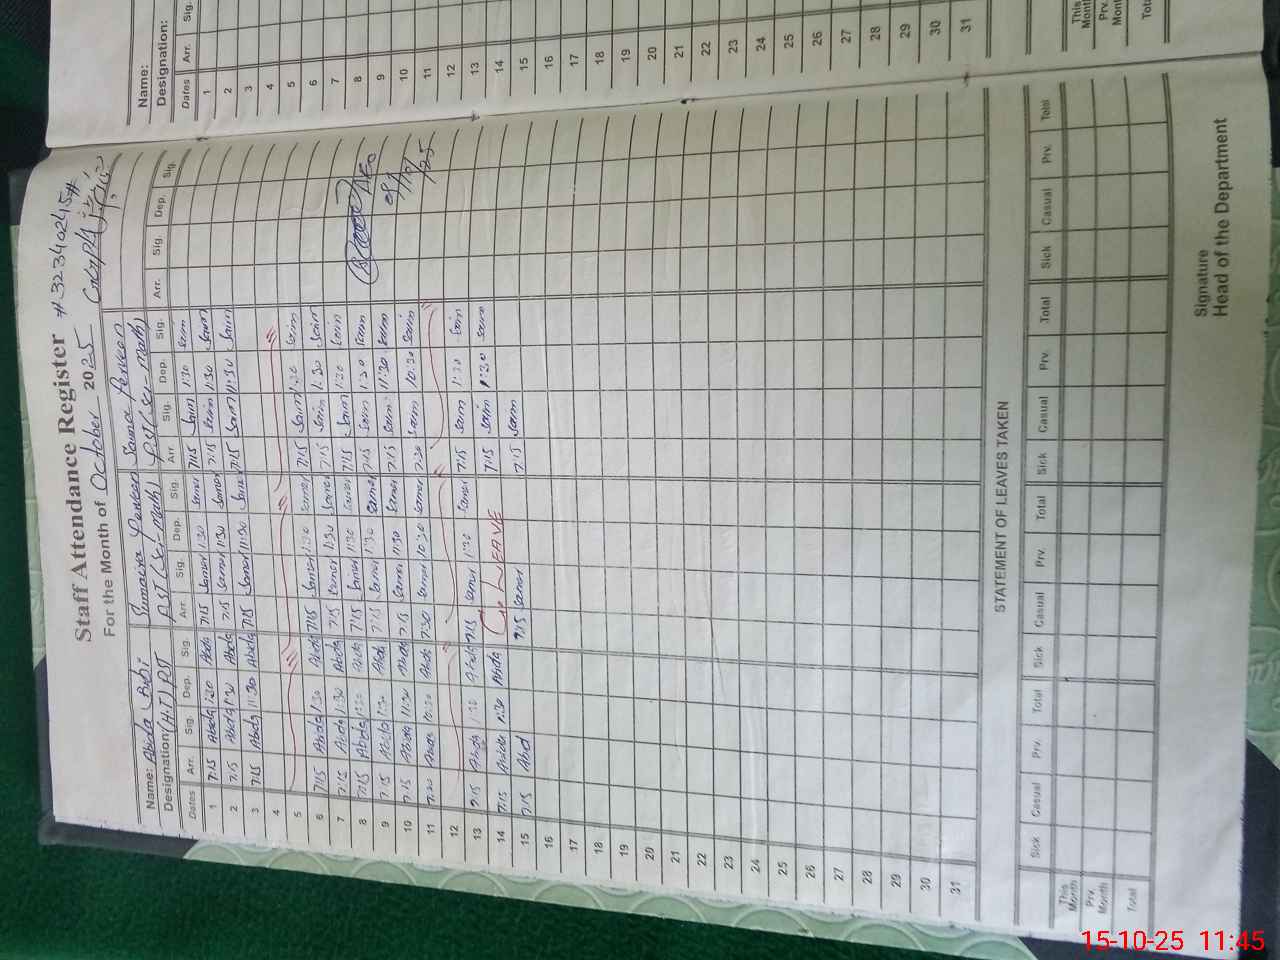 Staff Attendance Register #32340245#
For the Month of October 2025
Name: Abida Bibi Sumaira Perveen Saima Perveen
Designation (H.T) PST PST (Sci-math) PST (Sci-math)
Dates Arr. Sig. Dep. Sig. Arr. Sig. Dep. Sig. Arr. Sig. Dep. Sig. Arr. Sig. Dep. Sig.
1 7:15 Abida 1:30 Abida 7:15 Samer 1:30 Samer 7:15 Saim 1:30 Saim
2 7:15 Abida 1:30 Abida 7:15 Samer 1:30 Samer 7:15 Saim 1:30 Saim
3 7:15 Abida 11:30 Abida 7:15 Samer 11:30 Samer 7:15 Saim 11:30 Saim
4
5
6 7:15 Abida 1:30 Abida 7:15 Samer 1:30 Samer 7:15 Saim 1:30 Saim
7 7:15 Abida 1:30 Abida 7:15 Samer 1:30 Samer 7:15 Saim 1:30 Saim
8 7:15 Abida 1:30 Abida 7:15 Samer 1:30 Samer 7:15 Saim 1:30 Saim
9 7:15 Abida 1:30 Abida 7:15 Samer 1:30 Samer 7:15 Saim 1:30 Saim
10 7:15 Abida 11:30 Abida 7:15 Samer 11:30 Samer 7:15 Saim 11:30 Saim
11 7:30 Abida 10:30 Abida 7:30 Samer 10:30 Samer 7:30 Saim 10:30 Saim
12
13 7:15 Abida 1:30 Abida 7:15 Samer 1:30 Samer 7:15 Saim 1:30 Saim
14 7:15 Abida 1:30 Abida LEAVE 7:15 Saim 1:30 Saim
15 7:15 Abid 7:15 Samer 7:15 Saim
16
17
18
19
20
21
22
23
24
25
26
27
28
29
30
31
STATEMENT OF LEAVES TAKEN
Sick Casual Prv. Total Sick Casual Prv. Total Sick Casual Prv. Total Sick Casual Prv. Total
This Month
Prv. Month
Total
Signature
Head of the Department
Name:
Designation:
Dates Arr. Sig.
1
2
3
4
5
6
7
8
9
10
11
12
13
14
15
16
17
18
19
20
21
22
23
24
25
26
27
28
29
30
31
This Month
Prv. Mont
Total
15-10-25 11:45